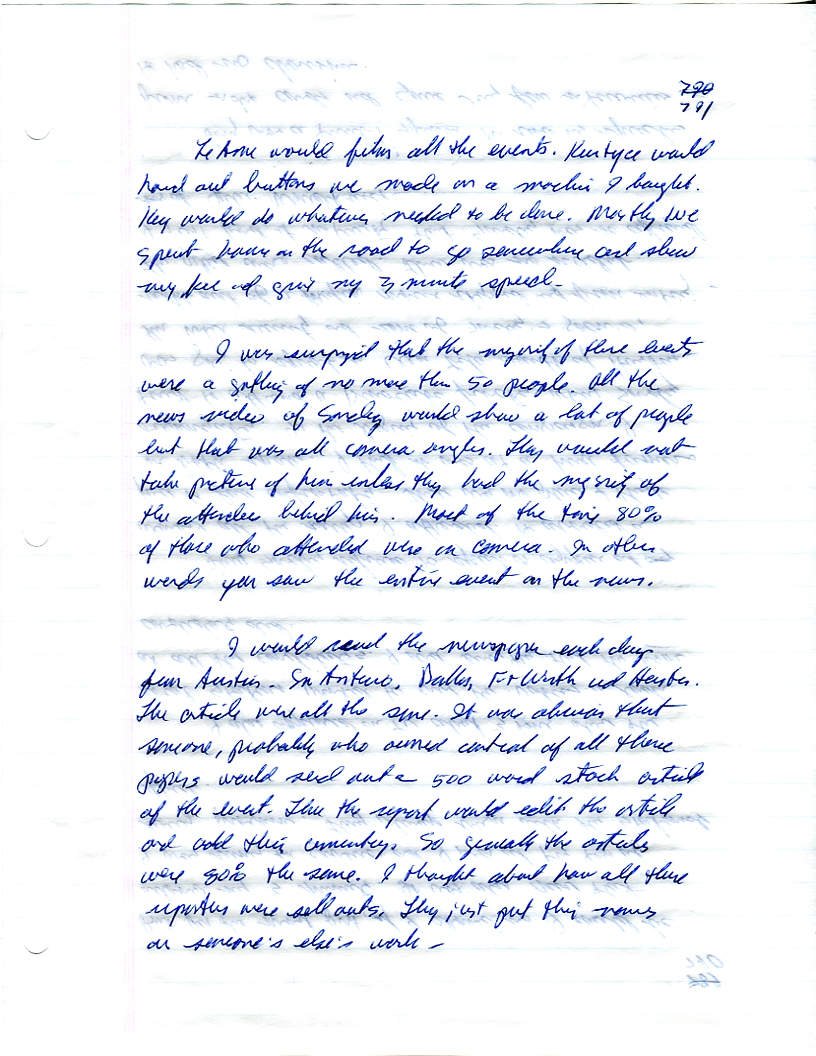 790
791
would film all the events. would
hand out buttons we made on a machin I bought.
Key would do whatever needed to be done. Mostly we
spent hours on the road to go somewhere and show
my face and give my 3 minute speech.
I was surprised that the majority of these events
were a gathing of no more than 50 people. All the
news video of would show a lot of people
but that was all camera angles. They would not
take picture of him unless they had the majority of
the attendee behind him. Most of the time 80%
of those who attended were on camera. In other
words you saw the entire event on the news.
I would read the newspaper each day
from Austin. San Antonio, Dallas, Ft Worth and Houston.
The article were all the same. It was obvious that
someone, probably who owned control of all these
papers would send out a 500 word stock article
of the event. Then the report would edit the article
and add their comentary. So generally the articles
were 80% the same. I thought about how all these
reporters were sell outs. They just put their names
on someone's else's work -